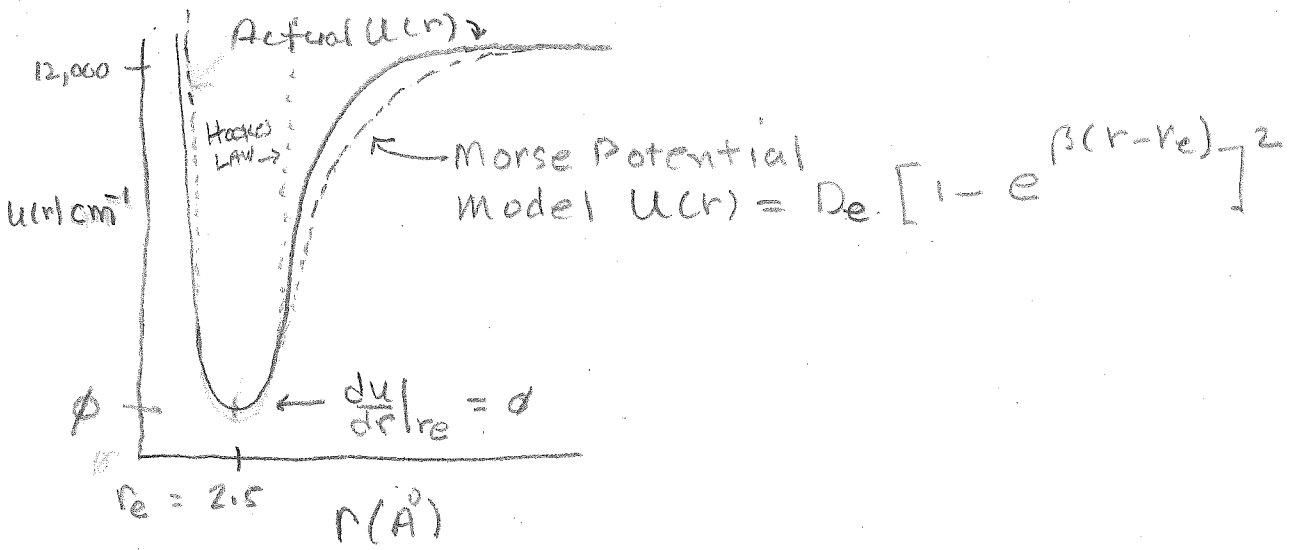 Actual U(r)
12,000
Hooke's
LAW→
Morse Potential
Model U(r) = De [1 - e^β(r-re)]^2
U(r) cm^-1
∅ ← du/dr|re = ∅
re = 2.5
r(Å)